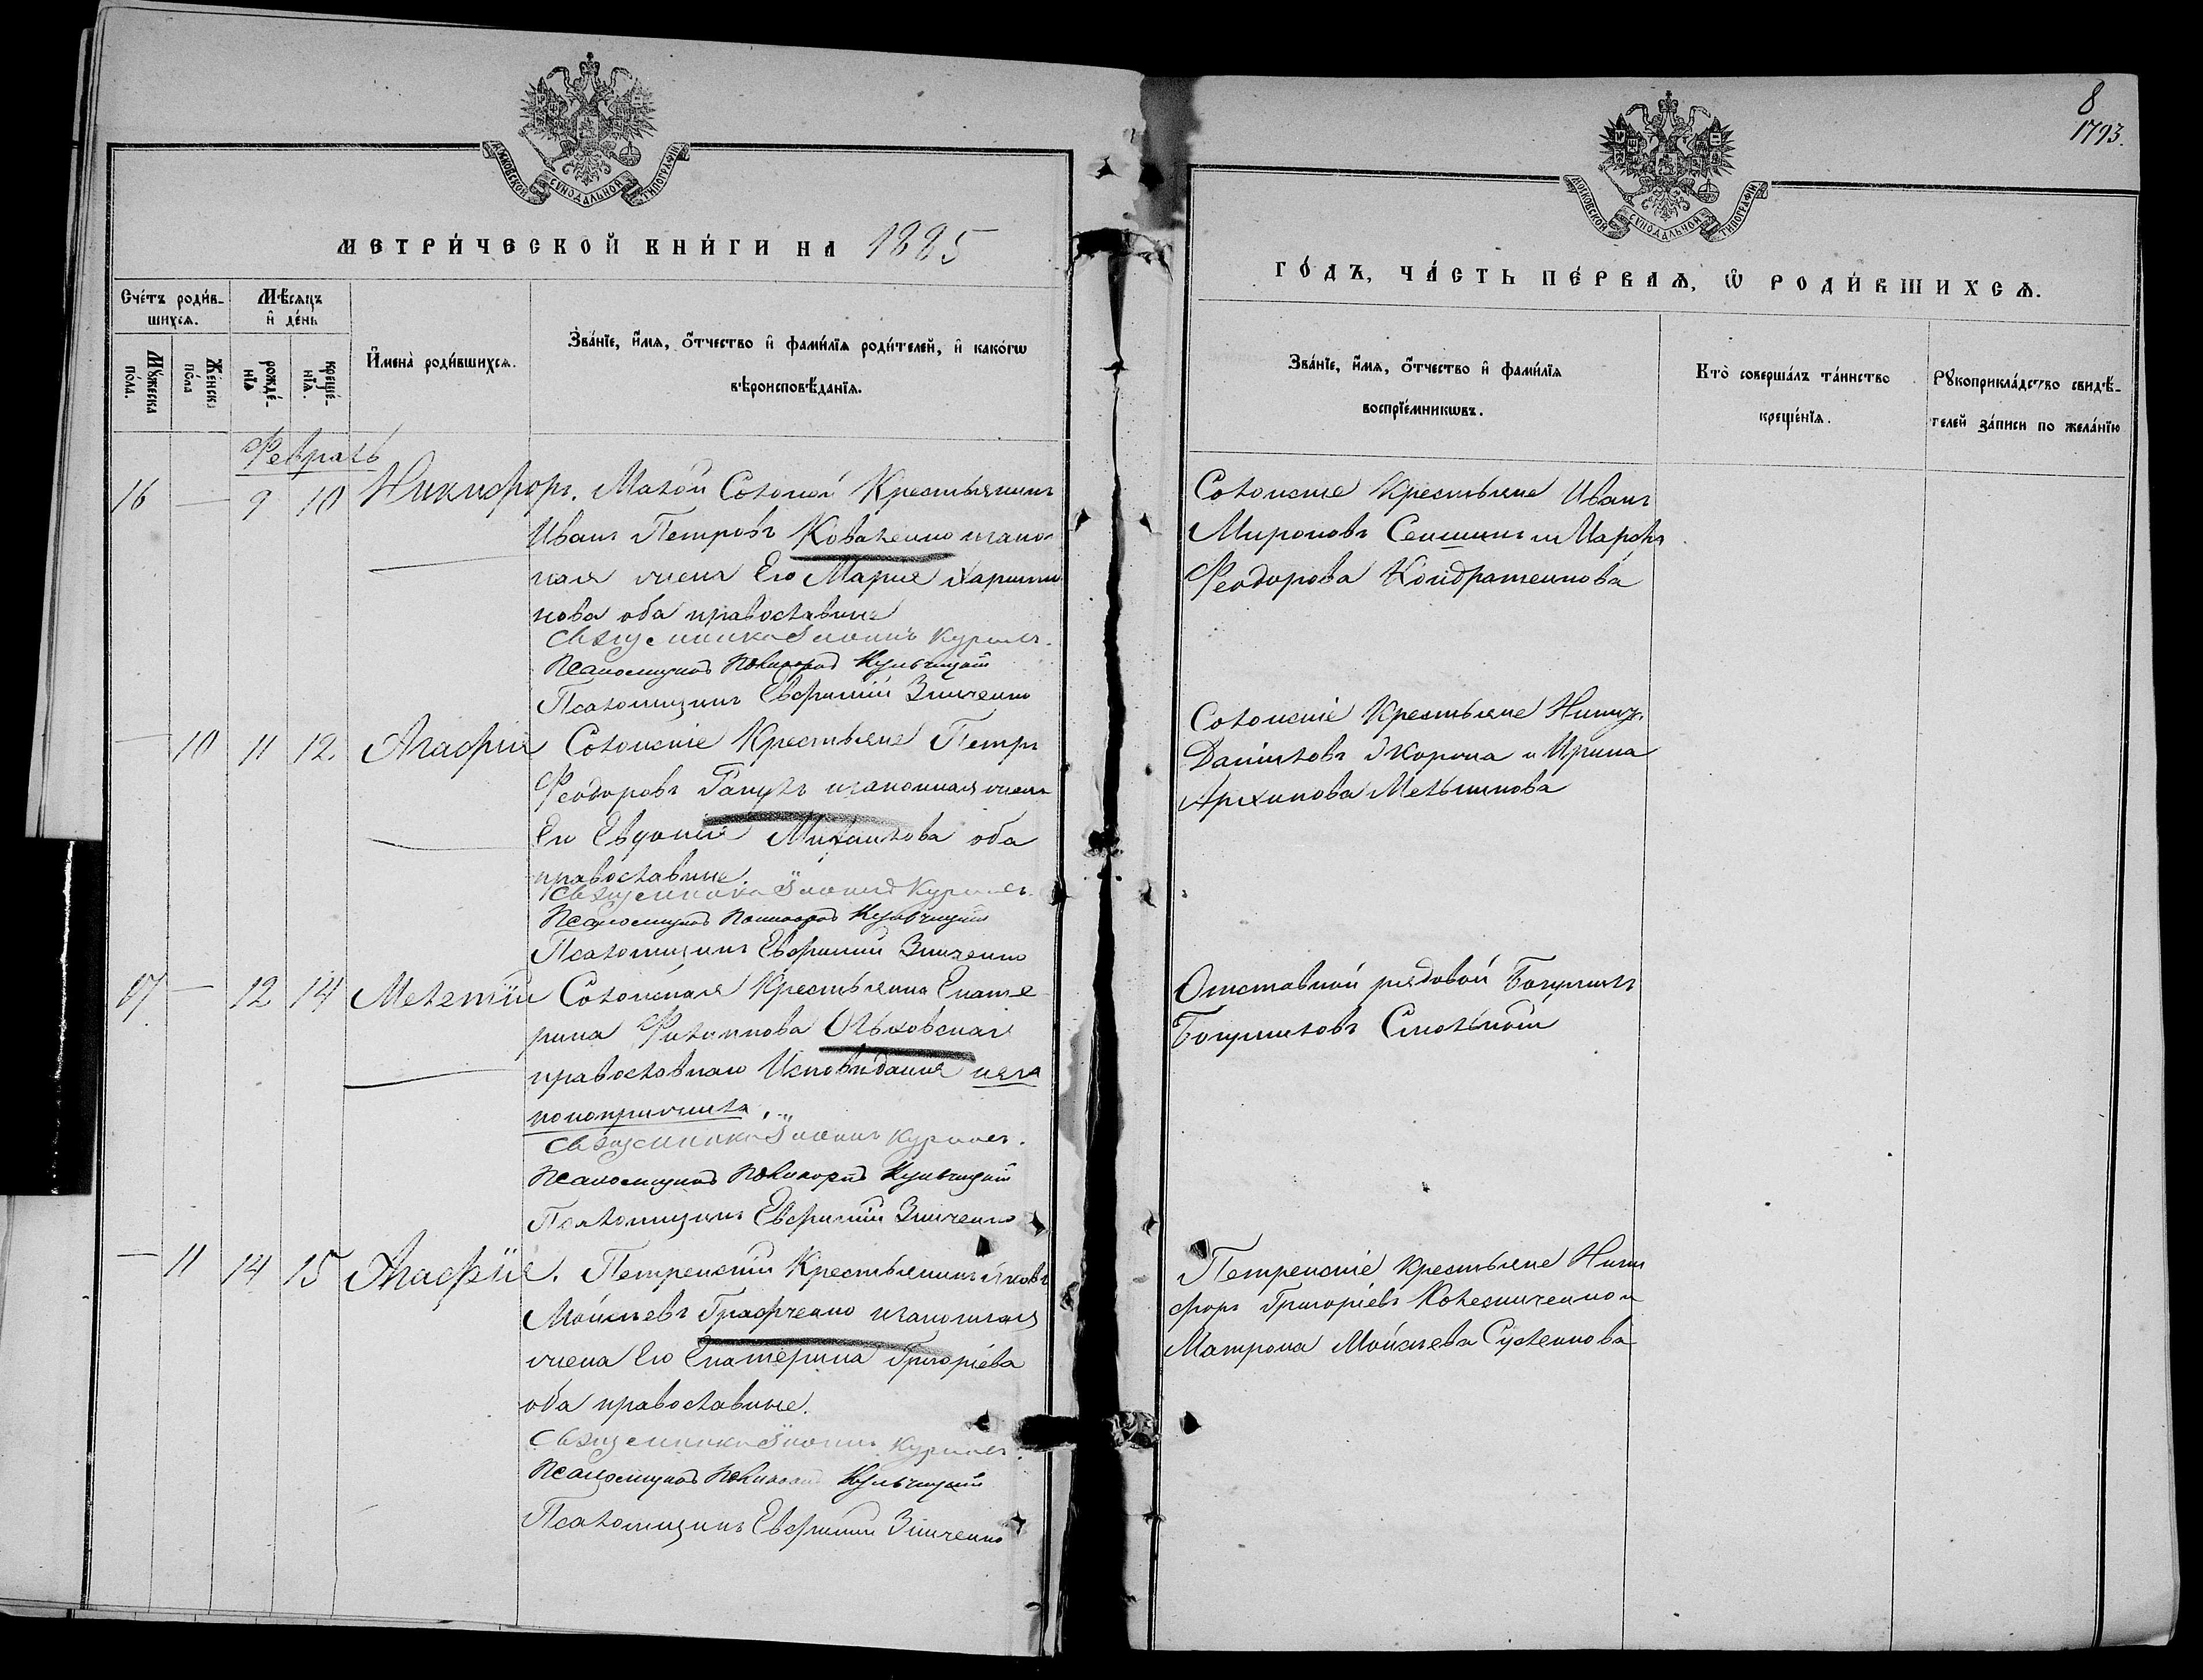 МОСКОВСКОЙ СѴНОДАЛЬНОЙ ТИПОГРАФІИ
МЕТРИ́ЧЕСКОЙ КНИ́ГИ НА 1885
Сче́тъ роди́в-
шихсѧ.
Мѣ́сѧцъ
и҆ де́нь
Мꙋ́жеска
по́ла.
Же́нска
по́ла
рожде́-
нїѧ
креще́-
нїѧ.
И҆мена̀ роди́вшихсѧ.
Зва́нїе, и҆́мѧ, ѻ҆́тчество и҆ фами́лїѧ роди́телей, и҆ како́гѡ
вѣроисповѣ́данїѧ.
Февраль
16 — 9 10 Никифоръ. Крестьянинъ
Иванъ Петровъ Коваленко и закон-
ная жена Его Марія Харито
нова оба православные
Священникъ Іоаннъ
Псаломщикъ Кульчицкій
Псаломщикъ Евфимій Зинченко
— 10 11 12. Агафія Солонскіе Крестьяне Петръ
Феодоровъ и законная жена
Его Евдокія Михайлова оба
православные.
Священникъ Іоаннъ
Псаломщикъ Кульчицкій
Псаломщикъ Евфимій Зинченко
17 — 12 14 Мелетій Солонская Крестьянка Екате
рина Филиппова Ольховская
православнаго Исповѣданія неза
коннорижила.
Священникъ Іоаннъ
Псаломщикъ Кульчицкій
Псаломщикъ Евфимій Зинченко
— 11 14 15 Агафія. Петренскій Крестьянинъ Яковъ
Моисѣевъ Графченко и законная
жена Его Екатерина Григоріева
оба православные.
Священникъ Іоаннъ
Псаломщикъ Кульчицкій
Псаломщикъ Евфимій Зинченко
8
1793.
МОСКОВСКОЙ СѴНОДАЛЬНОЙ ТИПОГРАФІИ
ГО́ДЪ, ЧА́СТЬ ПЕ́РВАѦ, Ѡ҆ РОДИ́ВШИХСѦ.
Зва́нїе, и҆́мѧ, ѻ҆́тчество и҆ фами́лїѧ
воспрїе́мникѡвъ.
Кто̀ соверша́лъ та́инство
креще́нїѧ.
Рꙋкоприкла́дство свидѣ́-
телей за́писи по жела́нїю
Солонскіе Крестьяне Иванъ
Мироновъ и Марфа
Феодорова Кондратенкова
Солонскіе Крестьяне
Даниловъ и Ирина
Архипова Мельникова
Отставной рядовой
Петренскіе Крестьяне Ники
форъ Григоріевъ Колесниченко и
Матрона Моисѣева